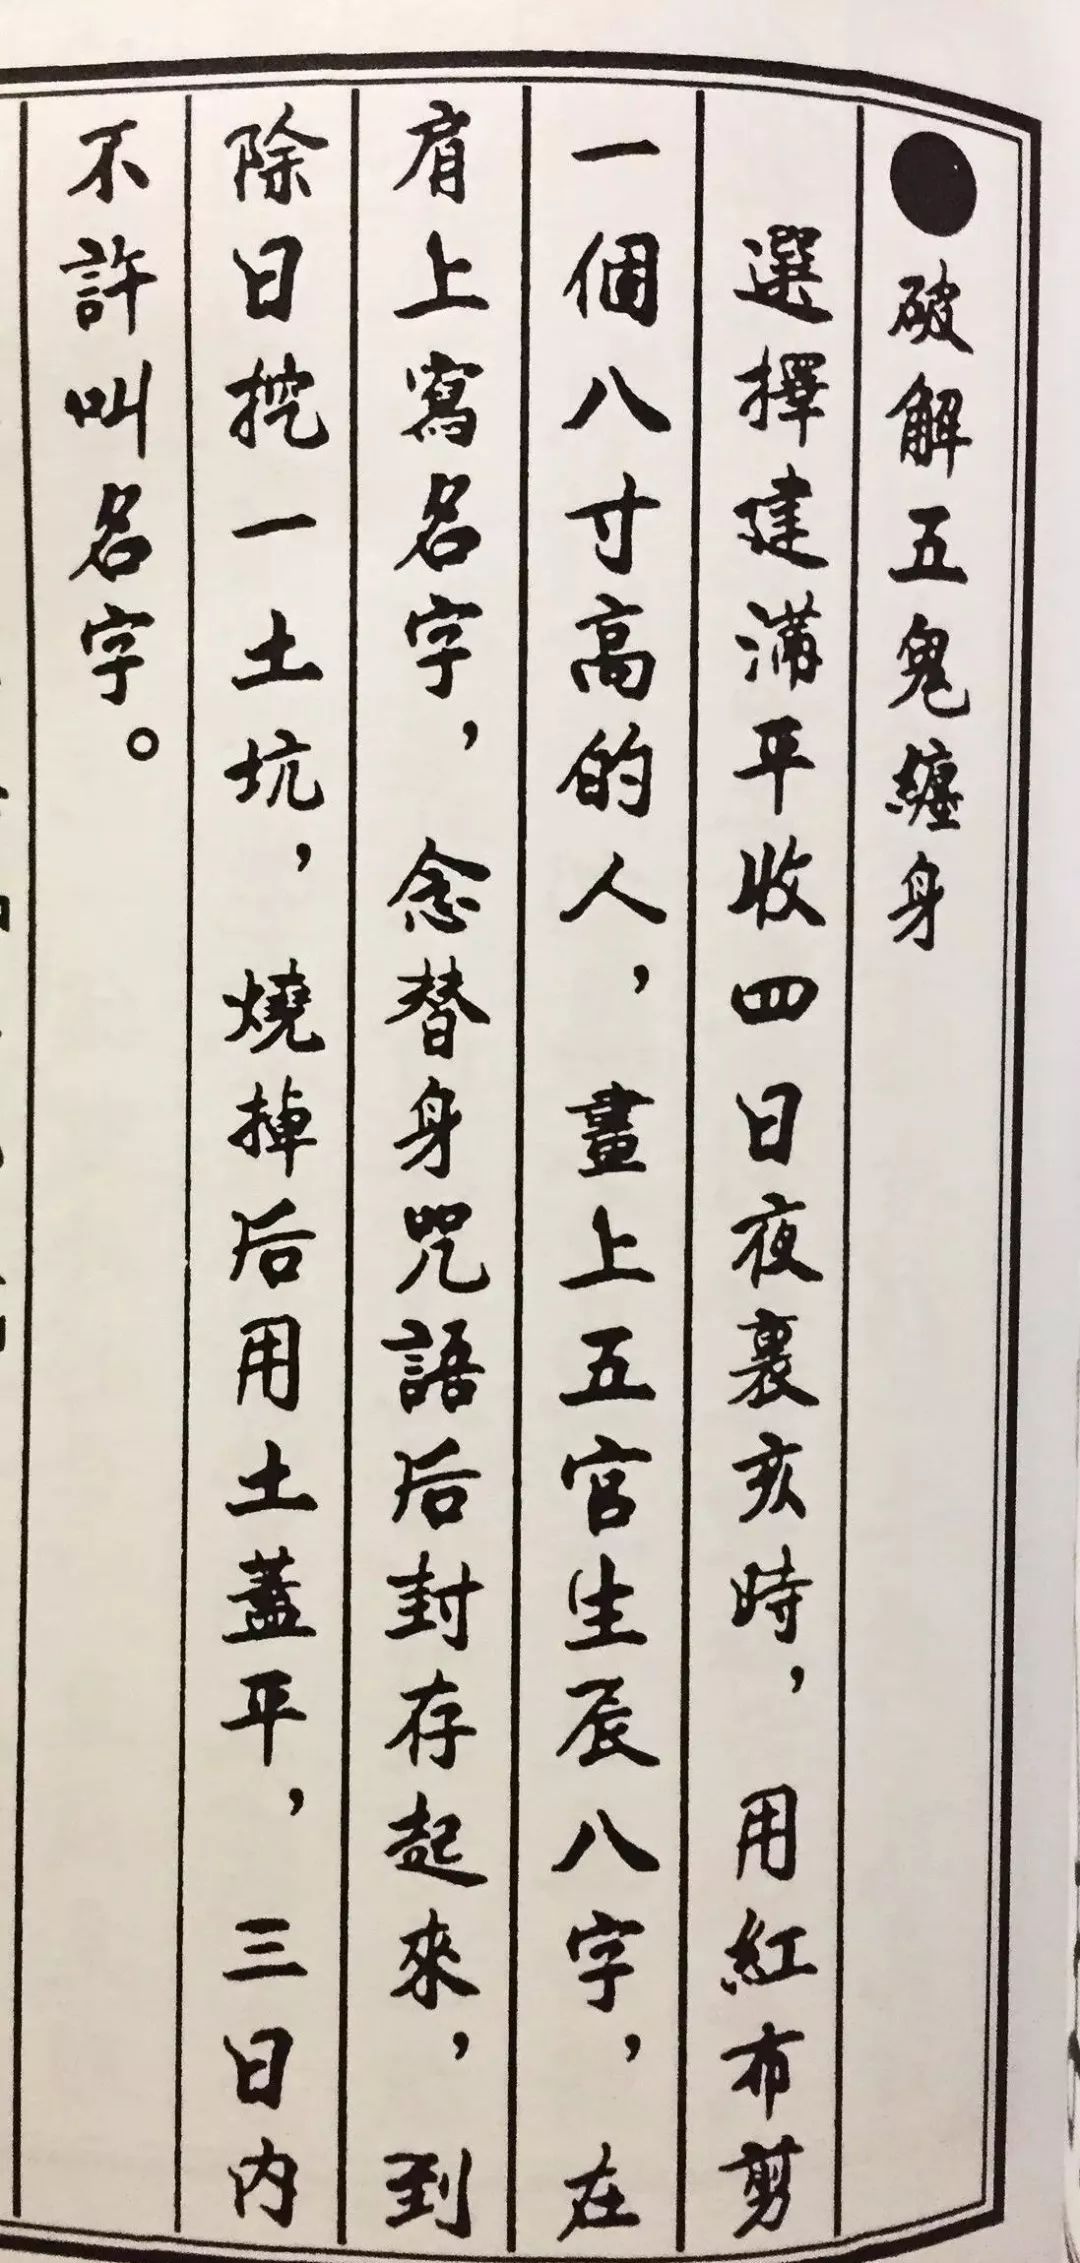 ●破解五鬼纏身
選擇建滿平收四日夜裏亥時，用紅布剪
一個八寸高的人，畫上五官生辰八字，在
肩上寫名字，念替身咒語后封存起來，到
除日挖一土坑，燒掉后用土蓋平，三日内
不許叫名字。